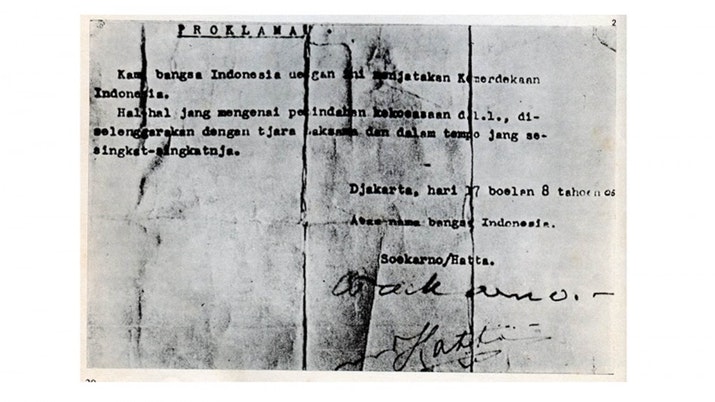 2
PROKLAMASI.
Kami bangsa Indonesia dengan ini menjatakan Kemerdekaan
Indonesia.
Hal-hal jang mengenai pemindahan kekoeasaan d.l.l., di-
selenggarakan dengan tjara saksama dan dalam tempo jang se-
singkat-singkatnja.
Djakarta, hari 17 boelan 8 tahoen 05
Atas nama bangsa Indonesia.
Soekarno/Hatta.
Soekarno.-
Hatta